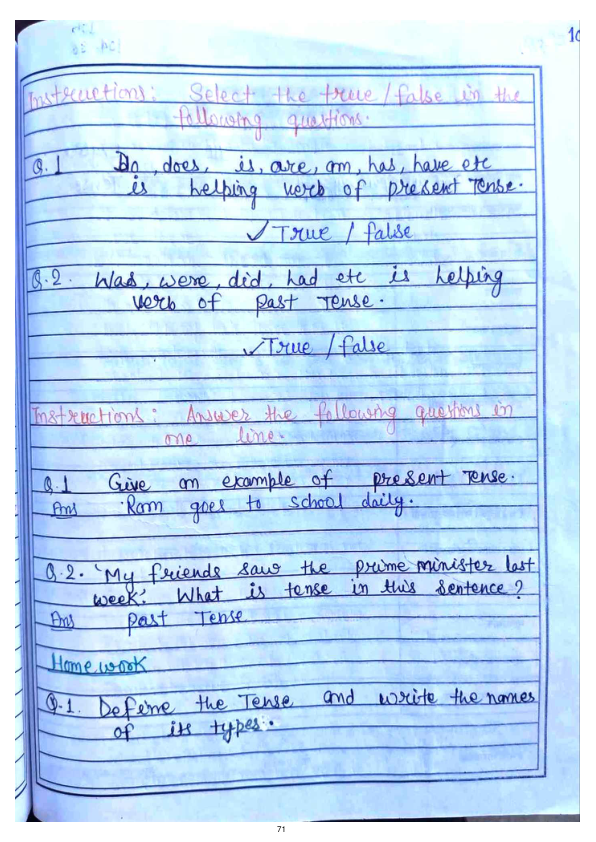 10
Instructions: Select the true / false in the
following questions.
Q.1 Do, does, is, are, am, has, have etc
is helping verb of present Tense.
✓ True / false
Q.2. Was, were, did, had etc is helping
verb of past Tense.
✓ True / false
Instructions: Answer the following questions in
one line.
Q.1 Give an example of present Tense.
Ans Ram goes to school daily.
Q.2. 'My friends saw the prime minister last
week.' What is tense in this sentence?
Ans past Tense
Home work
Q.1. Define the Tense and write the names
of its types.
71